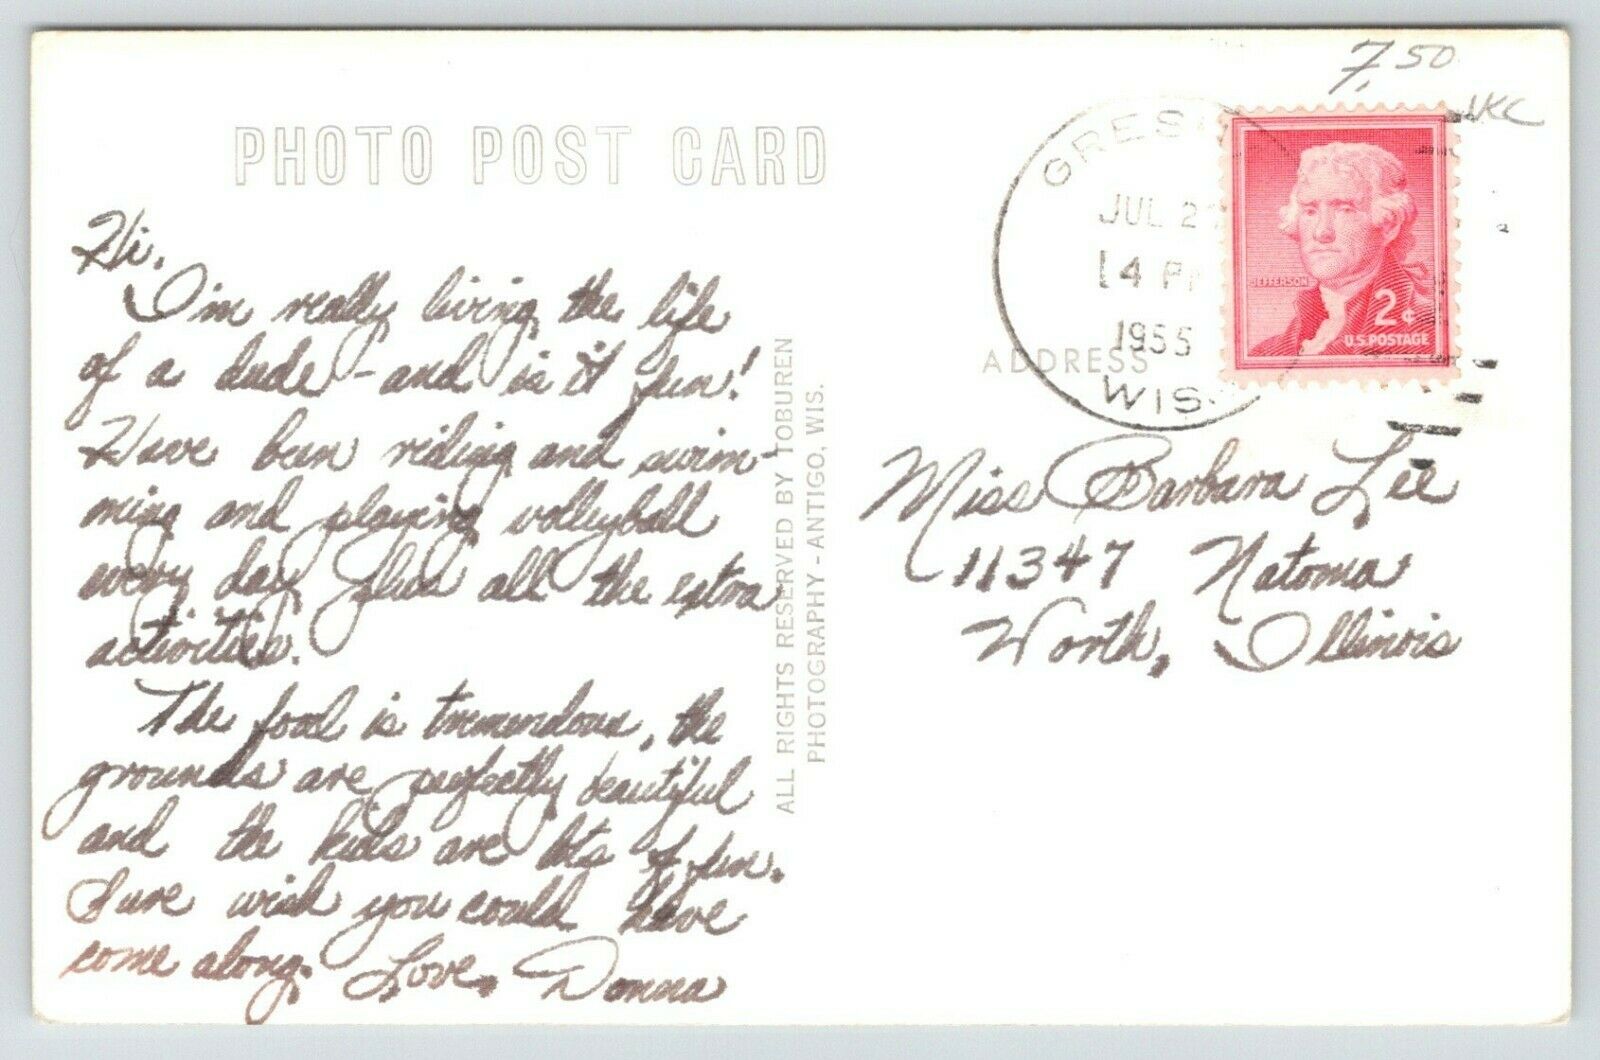 7.50
PHOTO POST CARD
GRES
JUL 27
4 P
1955
WIS.
JEFFERSON
2¢
U.S. POSTAGE
ADDRESS
Hi,
I'm really living the life
of a dude - and is it fun!
Have been riding and swim-
ming and playing volleyball
every day plus all the extra
activities.
The food is tremendous, the
grounds are perfectly beautiful
and the kids are lots of fun.
Sure wish you could have
come along. Love, Donna
ALL RIGHTS RESERVED BY TOBUREN
PHOTOGRAPHY - ANTIGO, WIS.
Miss Barbara Lee
11347 Natoma
Worth, Illinois